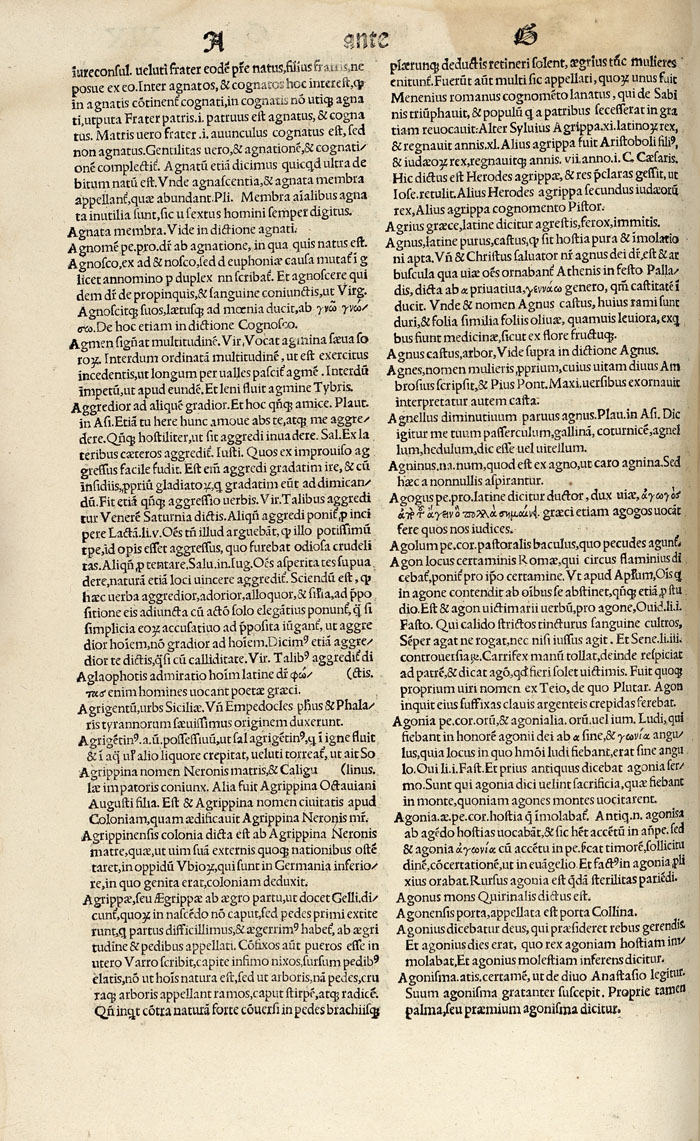 A ante G
iureconsul. ueluti frater eodē pr̄e natus, filius fratris, ne
posue ex eo. Inter agnatos, & cognatos hoc interest, ꝙ
in agnatis cōtinent̄ cognati, in cognatis nō utiqꝫ agna
ti, utputa Frater patris .i. patruus est agnatus, & cogna
tus. Matris uero frater .i. auunculus cognatus est, sed
non agnatus. Gentilitas uero, & agnationē, & cognati/
onē complectit̄. Agnatū etiā dicimus quicqd ultra de
bitum natū est. Vnde agnascentia, & agnata membra
appellant̄, quæ abundant. Pli. Membra aīalibus agna
ta inutilia sunt, sic u sextus homini semper digitus.
Agnata membra. Vide in dictione agnati.
Agnomē pe.pro. dī ab agnatione, in qua quis natus est.
Agnosco, ex ad & nosco, sed d euphoniæ causa mutat̄ ī g
licet annomino p duplex nn scribat̄. Et agnoscere qui
dem dr̄ de propinquis, & sanguine coniunctis, ut Virg.
Agnoscitqꝫ suos, lætusqꝫ ad mœnia ducit, ab γνῶ γνώ/
σω. De hoc etiam in dictione Cognosco.
Agmen sign̄at multitudinē. Vir. Vocat agmina sæua so
roꝝ. Interdum ordinatā multitudinē, ut est exercitus
incedentis, ut longum per ualles pascit̄ agmē. Interdū
īmpetū, ut apud eundē. Et leni fluit agmine Tybris.
Aggredior ad aliquē gradior. Et hoc qn̄qꝫ amice. Plaut.
in Asi. Etiā tu here hunc amoue abs te, atqꝫ me aggre/
dere. Qn̄qꝫ hostiliter, ut sit aggredi inuadere. Sal. Ex la
teribus cæteros aggredit̄. Iusti. Quos ex improuiso ag
gressus facile fudit. Est em̄ aggredi gradatim ire, & cū
insidiis, ꝓpriū gladiatoꝝ, q gradatim eūt ad dimican/
dū. Fit etiā qn̄qꝫ aggressio uerbis. Vir. Talibus aggredi
tur Venerē Saturnia dictis. Aliqn̄ aggredi ponit̄, p inci
pere Lactā. li. v. Oēs tn̄ illud arguebāt, ꝙ illo potissimū
tp̄e, id opis esset aggressus, quo furebat odiosa crudeli
tas. Aliqn̄, p tentare, Salu. in. Iug. Oēs asperita tes supua
dere, naturā etiā loci uincere aggredit̄. Sciendū est, ꝙ
hæc uerba aggredior, adorior, alloquor, & sil̄ia, ad ꝓpo
sitione eis adiuncta cū actō solo elegātius ponunt̄, q̄ si
simplicia eoꝝ accusatiuo ad ꝓposita iūgant̄, ut aggre
dior hoīem, nō gradior ad hoīem. Dicimꝰ etiā aggre/
dior te dictis, q̄si cū calliditate. Vir. Talibꝰ aggredit̄ di
Aglaophotis admiratio hoīm latine dr̄ φώ/ (ctis.
τας enim homines uocant poetæ græci.
Agrigentū, urbs Siciliæ. Vn̄ Empedocles ph̄us & Phala/
ris tyrannorum sæuissimus originem duxerunt.
Agrigētinꝰ. a. ū. possessiuū, ut sal agrigētinꝰ, q ī igne fluit
& ī aq̄ ul̄ alio liquore crepitat, ueluti torreat̄, ut ait So
Agrippina nomen Neronis matris, & Caligu (linus.
læ imparoris coniunx. Alia fuit Agrippina Octauiani
Augusti filia. Est & Agrippina nomen ciuitatis apud
Coloniam, quam ædificauit Agrippina Neronis mr̄.
Agrippinensis colonia dicta est ab Agrippina Neronis
matre, quæ, ut uim suā externis quoqꝫ nationibus ostē
taret, in oppidū Vbioꝝ, qui sunt in Germania inferio/
re, in quo genita erat, coloniam deduxit.
Agrippæ, seu Ægrippæ ab ægro partu, ut docet Gelli. di/
cunt̄, quoꝝ in nascēdo nō caput, sed pedes primi extite
runt, q partus difficillimus, & ægerrimꝰ habet̄, ab ægri
tudine & pedibus appellati. Cōfixos aūt pueros esse in
utero Varro scribit, capite infimo nixos, sursum pedibꝰ
elatis, nō ut hoīs natura est, sed ut arboris, nā pedes, cru
raqꝫ arboris appellant ramos, caput stirpē, atqꝫ radicē.
Qn̄ inqt cōtra naturā forte cōuersi in pedes brachiisqꝫ
plærunqꝫ deductis retineri solent, ægrius tūc mulieres
enitunt̄. Fuerūt aūt multi sic appellati, quoꝝ unus fuit
Menenius romanus cognomēto lanatus, qui de Sabi
nis triūphauit, & populū q a patribus secesserat in gra
tiam reuocauit. Alter Syluius Agrippa. xi. latinoꝝ rex,
& regnauit annis. xl. Alius agrippa fuit Aristoboli filiꝰ,
& iudæoꝝ rex, regnauitqꝫ annis. vii. anno. i. C. Cæsaris.
Hic dictus est Herodes agrippæ, & res ꝓclaras gessit, ut
Iose. retulit. Alius Herodes agrippa secundus iudæorū
rex, Alius agrippa cognomento Pistor.
Agrius græce, latine dicitur agrestis, ferox, immitis.
Agnus, latine purus, castus, ꝙ sit hostia pura & īmolatio
ni apta. Vn̄ & Christus saluator nr̄ agnus dei dr̄. est & ar
buscula qua uiæ oēs ornabant̄ Athenis in festo Palla/
dis, dicta ab α priuatiua, γεννάω genero, qm̄ castitatē ī
ducit. Vnde & nomen Agnus castus, huius rami sunt
duri, & folia similia foliis oliuæ, quamuis leuiora, exqꝫ
bus fiunt medicinæ, sicut ex flore fructuqꝫ.
Agnus castus, arbor, Vide supra in dictione Agnus.
Agnes, nomen mulieris ꝓprium, cuius uitam diuus Am
brosius scripsit, & Pius Pont. Maxi. uersibus exornauit
interpretatur autem casta.
Agnellus diminutiuum paruus agnus. Plau. in Asi. Dic
igitur me tuum passerculum, gallinā, coturnicē, agnel
lum, hedulum, dic esse uel uitellum.
Agninus. na. num, quod est ex agno, ut caro agnina. Sed
hæc a nonnullis aspirantur.
Agogus pe. pro. latine dicitur ductor, dux uiæ, ἀγωγὸς
græci etiam agogos uocāt
fere quos nos iudices.
Agolum pe. cor. pastoralis baculus, quo pecudes agunt̄.
Agon locus certaminis Romæ, qui circus flaminius di
cebat̄, ponit̄ pro ipo certamine. Vt apud Apl̄um, Oīs q
in agone contendit ab oībus se abstinet, qn̄qꝫ etiā, p stu
dio. Est & agon uictimarii uerbū, pro agone, Ouid. li. i.
Fasto. Qui calido strictos tincturus sanguine cultros,
Sēper agat ne rogat, nec nisi iussus agit. Et Sene. li. iii.
controuersiaꝝ. Carrifex manū tollat, deinde respiciat
ad patrē, & dicat agō, qd fieri solet uictimis. Fuit quoqꝫ
proprium uiri nomen ex Teio, de quo Plutar. Agon
inquit eius suffixas clauis argenteis crepidas ferebat.
Agonia pe. cor. orū, & agonialia. orū. uel ium. Ludi, qui
fiebant in honorē agonii dei ab α sine, & γωνία angu/
lus, quia locus in quo hmōi ludi fiebant, erat sine angu
lo. Oui li. i. Fast. Et prius antiquus dicebat agonia ser/
mo. Sunt qui agonia dici uelint sacrificia, quæ fiebant
in monte, quoniam agones montes uocitarent.
Agonia. æ. pe. cor. hostia q̄ īmolabat̄. Antiq. n. agonisa
ab agēdo hostias uocabāt, & sic hēt accētū in an̄pe. sed
& agonia ἀγωνία cū accētu in pe. ſcat timorē, sollicitu
dinē, cōcertationē, ut in euāgelio. Et factꝰ in agonia ꝓli
xius orabat. Rursus agonia est q̄dā sterilitas pariēdi.
Agonus mons Quirinalis dictus est.
Agonensis porta, appellata est porta Collina.
Agonius dicebatur deus, qui præsideret rebus gerendis.
Et agonius dies erat, quo rex agoniam hostiam im/
molabat, Et agonius molestiam inferens dicitur.
Agonisma. atis. certamē, ut de diuo Anastasio legitur.
Suum agonisma gratanter suscepit. Proprie tamen
palma, seu præmium agonisma dicitur.